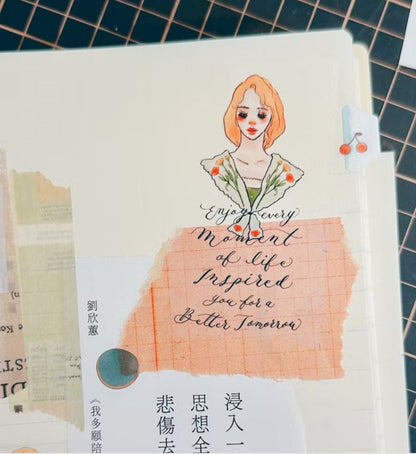 Enjoy every
Moment
of life
Inspired
you for a
Better Tomorrow
劉欣蕙
《我多願陪
浸入一
思想全
悲傷去